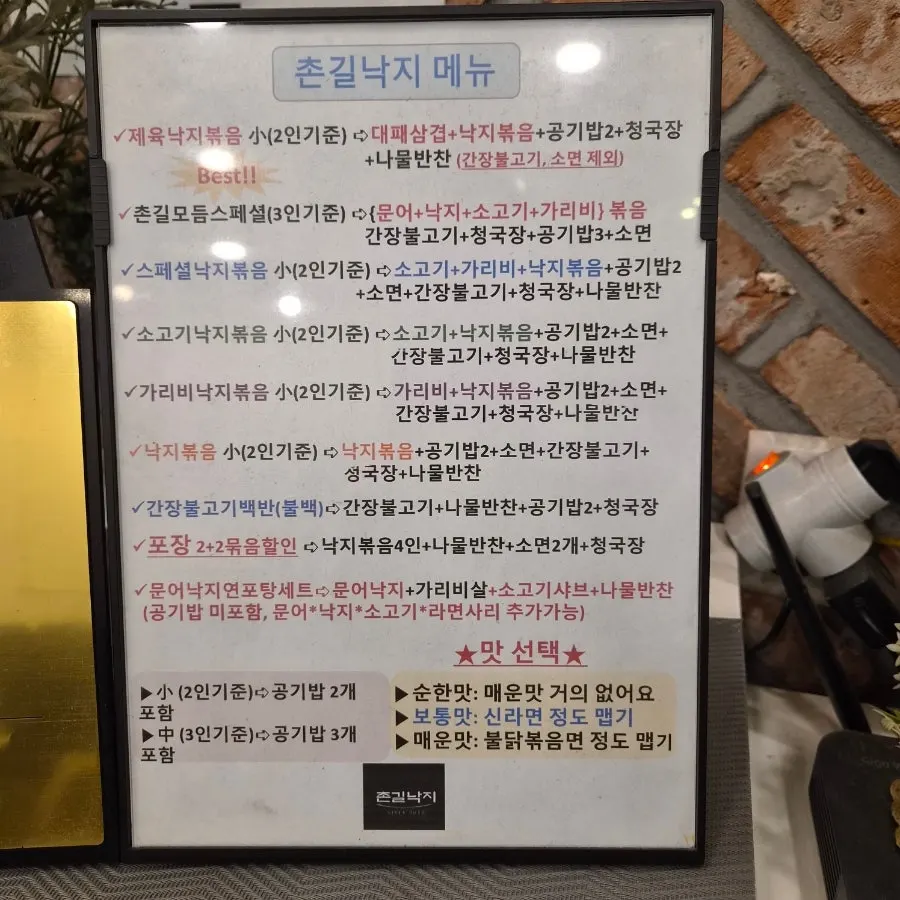 촌길낙지 메뉴
✓제육낙지볶음 小(2인기준) ➪대패삼겹+낙지볶음+공기밥2+청국장
+나물반찬 (간장불고기, 소면 제외)
Best!!
✓촌길모듬스페셜(3인기준) ➪{문어+낙지+소고기+가리비} 볶음
간장불고기+청국장+공기밥3+소면
✓스페셜낙지볶음 小(2인기준) ➪소고기+가리비+낙지볶음+공기밥2
+소면+간장불고기+청국장+나물반찬
✓소고기낙지볶음 小(2인기준) ➪소고기+낙지볶음+공기밥2+소면+
간장불고기+청국장+나물반찬
✓가리비낙지볶음 小(2인기준) ➪가리비+낙지볶음+공기밥2+소면+
간장불고기+청국장+나물반찬
✓낙지볶음 小(2인기준) ➪낙지볶음+공기밥2+소면+간장불고기+
청국장+나물반찬
✓간장불고기백반(불백)➪간장불고기+나물반찬+공기밥2+청국장
✓포장 2+2묶음할인 ➪낙지볶음4인+나물반찬+소면2개+청국장
✓문어낙지연포탕세트➪문어낙지+가리비살+소고기샤브+나물반찬
(공기밥 미포함, 문어*낙지*소고기*라면사리 추가가능)
★맛 선택★
▶小 (2인기준)➪공기밥 2개
포함
▶中 (3인기준)➪공기밥 3개
포함
▶순한맛: 매운맛 거의 없어요
▶보통맛: 신라면 정도 맵기
▶매운맛: 불닭볶음면 정도 맵기
촌길낙지